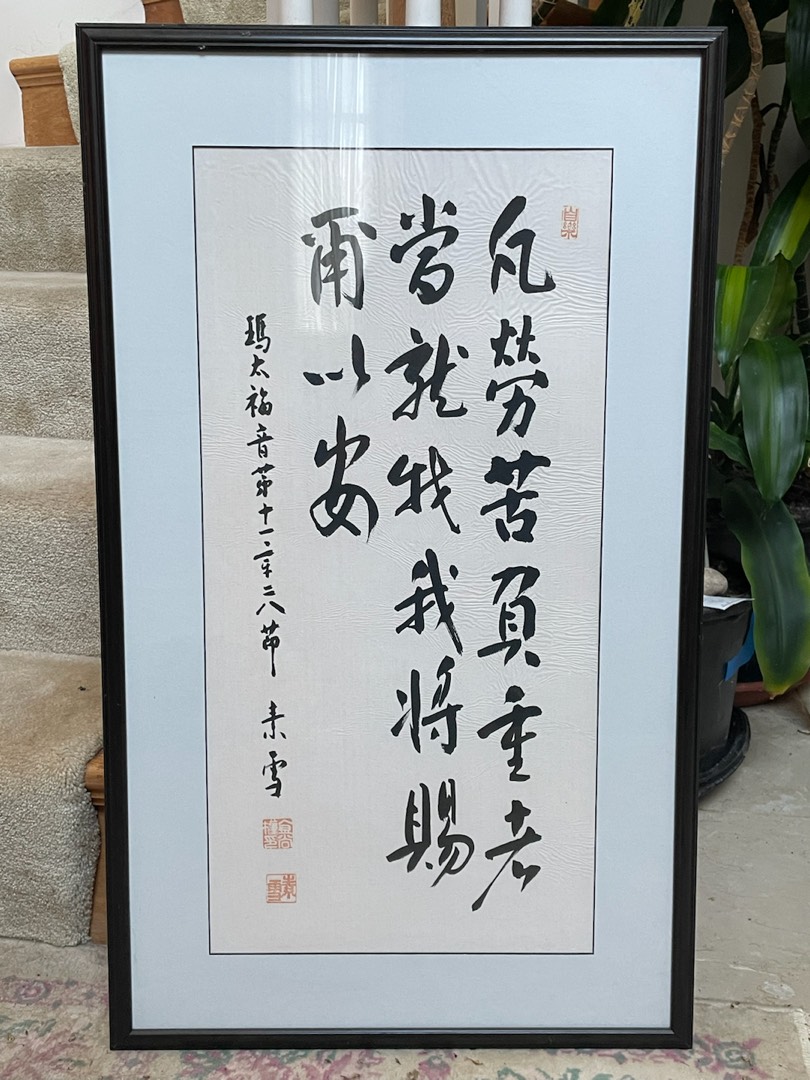 自樂
凡勞苦負重者
當就我我將賜
爾以安
瑪太福音第十一章二八節 素雪
素雪